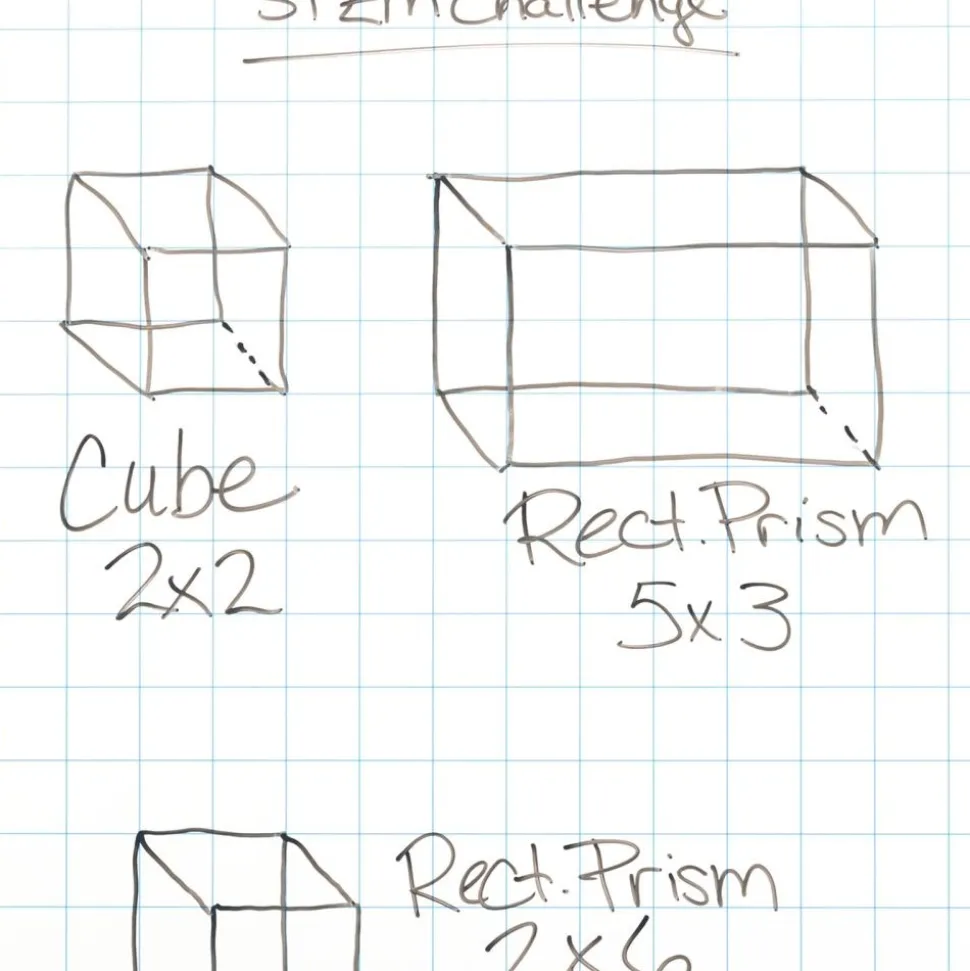 STEM Challenge
Cube
2x2
Rect. Prism
5x3
Rect. Prism
2x6